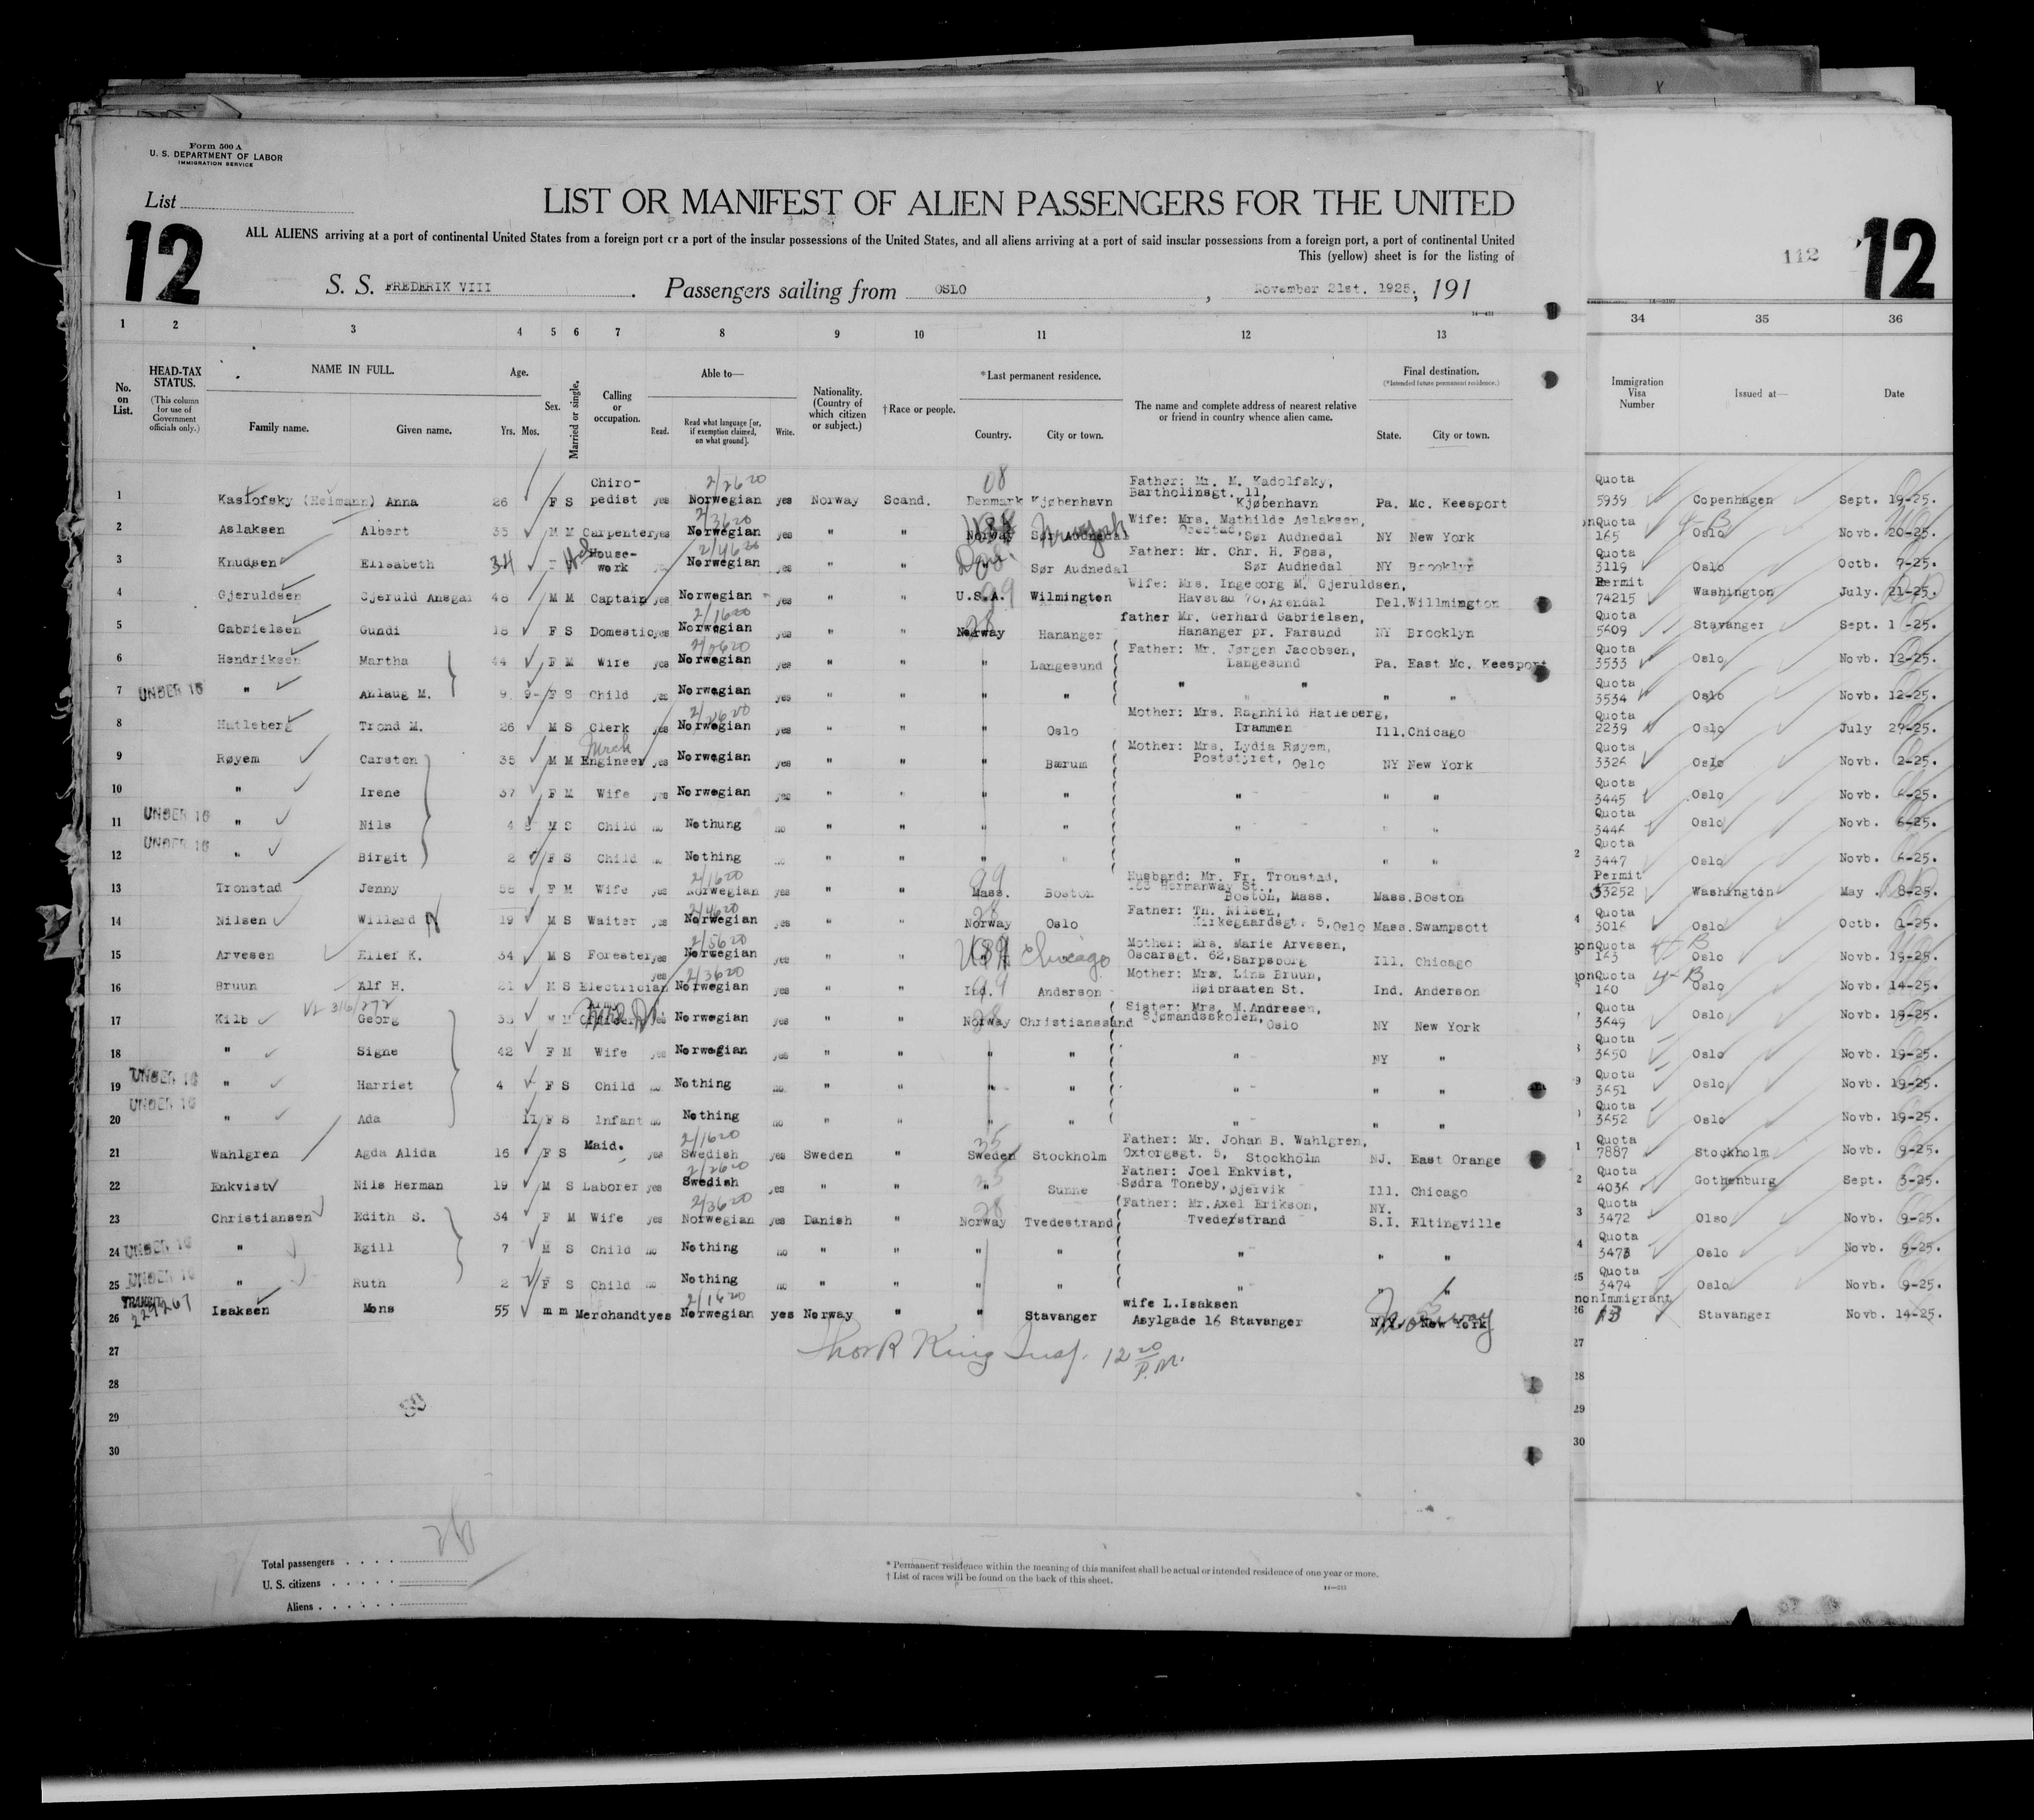 Form 500 A
U. S. DEPARTMENT OF LABOR
IMMIGRATION SERVICE
List
12
LIST OR MANIFEST OF ALIEN PASSENGERS FOR THE UNITED
ALL ALIENS arriving at a port of continental United States from a foreign port or a port of the insular possessions of the United States, and all aliens arriving at a port of said insular possessions from a foreign port, a port of continental United
This (yellow) sheet is for the listing of
112 12
S. S. FREDERIK VIII. Passengers sailing from OSLO, November 21st. 1925, 191
1 2 3 4 5 6 7 8 9 10 11 12 13 34 35 36
No. on List.
HEAD-TAX STATUS.
(This column for use of Government officials only.)
NAME IN FULL.
Family name. Given name.
Age.
Yrs. Mos.
Sex.
Married or single.
Calling or occupation.
Able to—
Read. Read what language [or, if exemption claimed, on what ground]. Write.
Nationality. (Country of which citizen or subject.)
†Race or people.
*Last permanent residence.
Country. City or town.
The name and complete address of nearest relative or friend in country whence alien came.
Final destination.
(*Intended future permanent residence.)
State. City or town.
Immigration Visa Number
Issued at—
Date
1 Kaslofsky (Heimann) Anna 26 F S Chiro-pedist yes Norwegian yes Norway Scand. Denmark Kjøbenhavn Father: Mr. M. Kadolfsky, Bartholinsgt. 11, Kjøbenhavn Pa. Mc. Keesport Quota 5939 Copenhagen Sept. 19-25.
2 Aslaksen Albert 35 M M Carpenter yes Norwegian yes " " Norway Sør Audnedal Wife: Mrs. Mathilde Aslaksen, Sør Audnedal NY New York Quota 165 Oslo Novb. 20-25.
3 Knudsen Elisabeth 34 House-work Norwegian yes " " Sør Audnedal Father: Mr. Chr. H. Foss, Sør Audnedal NY Brooklyn Quota 3119 Oslo Octb. 9-25.
4 Gjeruldsen Gjeruld Ansgar 48 M M Captain yes Norwegian yes " " U.S.A. Wilmington Wife: Mrs. Ingeborg M. Gjeruldsen, Havstad 70, Arendal Del. Willmington Permit 74215 Washington July. 21-25.
5 Gabrielsen Gundi 18 F S Domestic yes Norwegian yes " " Norway Hananger father Mr. Gerhard Gabrielsen, Hananger pr. Farsund NY Brooklyn Quota 5609 Stavanger Sept. 1 -25.
6 Hendriksen Martha 44 F M Wife yes Norwegian yes " " " Langesund Father: Mr. Jørgen Jacobsen, Langesund Pa. East Mc. Keesport Quota 3533 Oslo Novb. 12-25.
7 UNDER 16 " Anlaug M. 9 9 F S Child yes Norwegian yes " " " " " " " " Quota 3534 Oslo Novb. 12-25.
8 Hatleberg Trond M. 26 M S Clerk yes Norwegian yes " " " Oslo Mother: Mrs. Ragnhild Hatleberg, Drammen Ill. Chicago Quota 2239 Oslo July 29-25.
9 Røyem Carsten 35 M M Engineer yes Norwegian yes " " " Bærum Mother: Mrs. Lydia Røyem, Poststyret, Oslo NY New York Quota 3326 Oslo Novb. 2-25.
10 " Irene 37 F M Wife yes Norwegian yes " " " " " " " Quota 3445 Oslo Novb. 6-25.
11 UNDER 16 " Nils 4 M S Child no Nothung no " " " " " " " Quota 3446 Oslo Novb. 6-25.
12 UNDER 16 " Birgit 2 F S Child no Nothing no " " " " " " " Quota 3447 Oslo Novb. 6-25.
13 Tronstad Jenny 58 F M Wife yes Norwegian yes " " Mass. Boston Husband: Mr. Fr. Tronstad, 163 Hermanway St., Boston, Mass. Mass. Boston Permit 53252 Washington May 8-25.
14 Nilsen Willard 19 M S Waiter yes Norwegian yes " " Norway Oslo Father: Th. Nilsen, Kirkegaardsgt. 5, Oslo Mass. Swampsott Quota 3016 Oslo Octb. 1-25.
15 Arvesen Eilef K. 34 M S Forester yes Norwegian yes " " USA Chicago Mother: Mrs. Marie Arvesen, Oscarsgt. 62, Sarpsborg Ill. Chicago nonQuota 163 4-B Oslo Novb. 19-25.
16 Bruun Alf H. 21 M S Electrician yes Norwegian yes " " Ind. Anderson Mother: Mrs. Lina Bruun, Høibraaten St. Ind. Anderson nonQuota 160 4-B Oslo Novb. 14-25.
17 Kilb Georg M M Norwegian yes " " Norway Christianssand Sister: Mrs. M. Andresen, Sjømandsskolen, Oslo NY New York Quota 3649 Oslo Novb. 19-25.
18 " Signe 42 F M Wife yes Norwegian yes " " " " " NY " Quota 3650 Oslo Novb. 19-25.
19 UNDER 16 " Harriet 4 F S Child no Nothing no " " " " " " " Quota 3651 Oslo Novb. 19-25.
20 UNDER 16 " Ada 11 F S Infant no Nothing no " " " " " " " Quota 3652 Oslo Novb. 19-25.
21 Wahlgren Agda Alida 16 F S Maid. yes Swedish yes Sweden " Sweden Stockholm Father: Mr. Johan B. Wahlgren, Oxtorgsgt. 5, Stockholm NJ. East Orange Quota 7887 Stockholm Novb. 9-25.
22 Enkvist Nils Herman 19 M S Laborer yes Swedish yes " " " Sunne Father: Joel Enkvist, Sødra Toneby, Øjervik Ill. Chicago Quota 4036 Gothenburg Sept. 3-25.
23 Christiansen Edith S. 34 F M Wife yes Norwegian yes Danish " Norway Tvedestrand Father: Mr. Axel Erikson, Tvederstrand NY. S.I. Eltingville Quota 3472 Olso Novb. 9-25.
24 UNDER 16 " Egill 7 M S Child no Nothing no " " " " " " " Quota 3473 Oslo Novb. 9-25.
25 UNDER 16 " Ruth 2 F S Child no Nothing no " " " " " " " Quota 3474 Oslo Novb. 9-25.
26 TRANSIT Isaksen Mons 55 m m Merchant yes Norwegian yes Norway " " Stavanger wife L. Isaksen Asylgade 16 Stavanger N.Y. New York Norway nonImmigrant 13 Stavanger Novb. 14-25.
27 Thor R King Insp. 12 20 P.M. 27
28 28
29 29
30 30
26
Total passengers
U. S. citizens
Aliens
* Permanent residence within the meaning of this manifest shall be actual or intended residence of one year or more.
† List of races will be found on the back of this sheet.